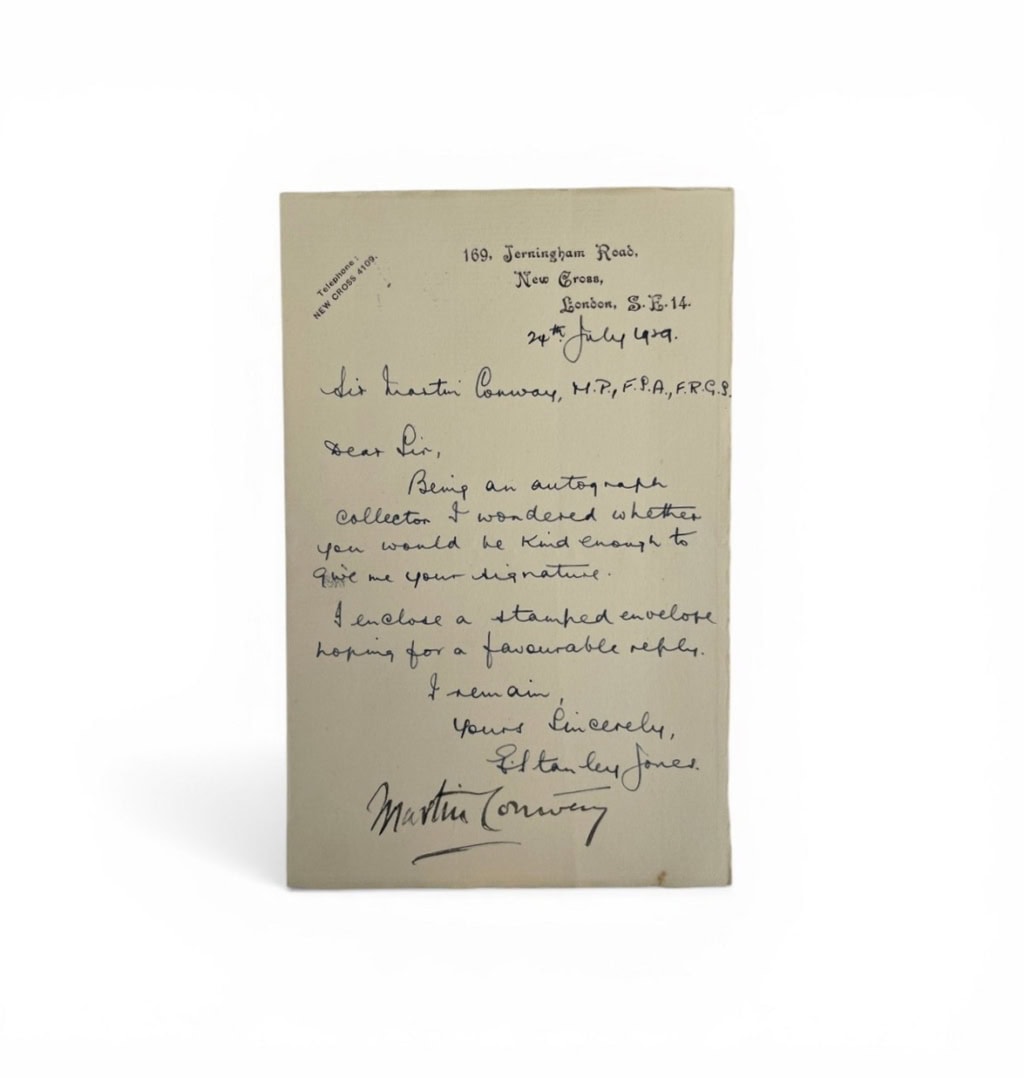 Telephone:
NEW CROSS 4109.
169, Jerningham Road,
New Cross,
London, S.E.14.
24th July 1929.
Sir Martin Conway, M.P., F.S.A., F.R.G.S.
Dear Sir,
Being an autograph
collector I wondered whether
you would be kind enough to
give me your signature.
I enclose a stamped envelope
hoping for a favourable reply.
I remain,
Yours Sincerely,
E. Stanley Jones.
Martin Conway